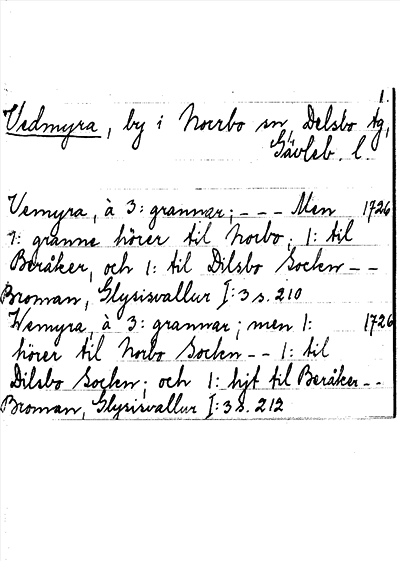 1.
Vedmyra, by i Norrbo sn, Delsbo tg,
Gävleb. l.
Vemyra, à 3: grannar; - - - Men 1726
1: granne hörer til Norbo, 1: til
Beråker, och 1: til Dilsbo Socken - -
Broman, Glysisvallur I:3 s. 210
Wemyra, à 3: grannar; men 1: 1726
hörer til Norbo Socken - - 1: til
Dilsbo Socken; och 1: hjt til Beråker - -
Broman, Glysisvallur I:3 s. 212